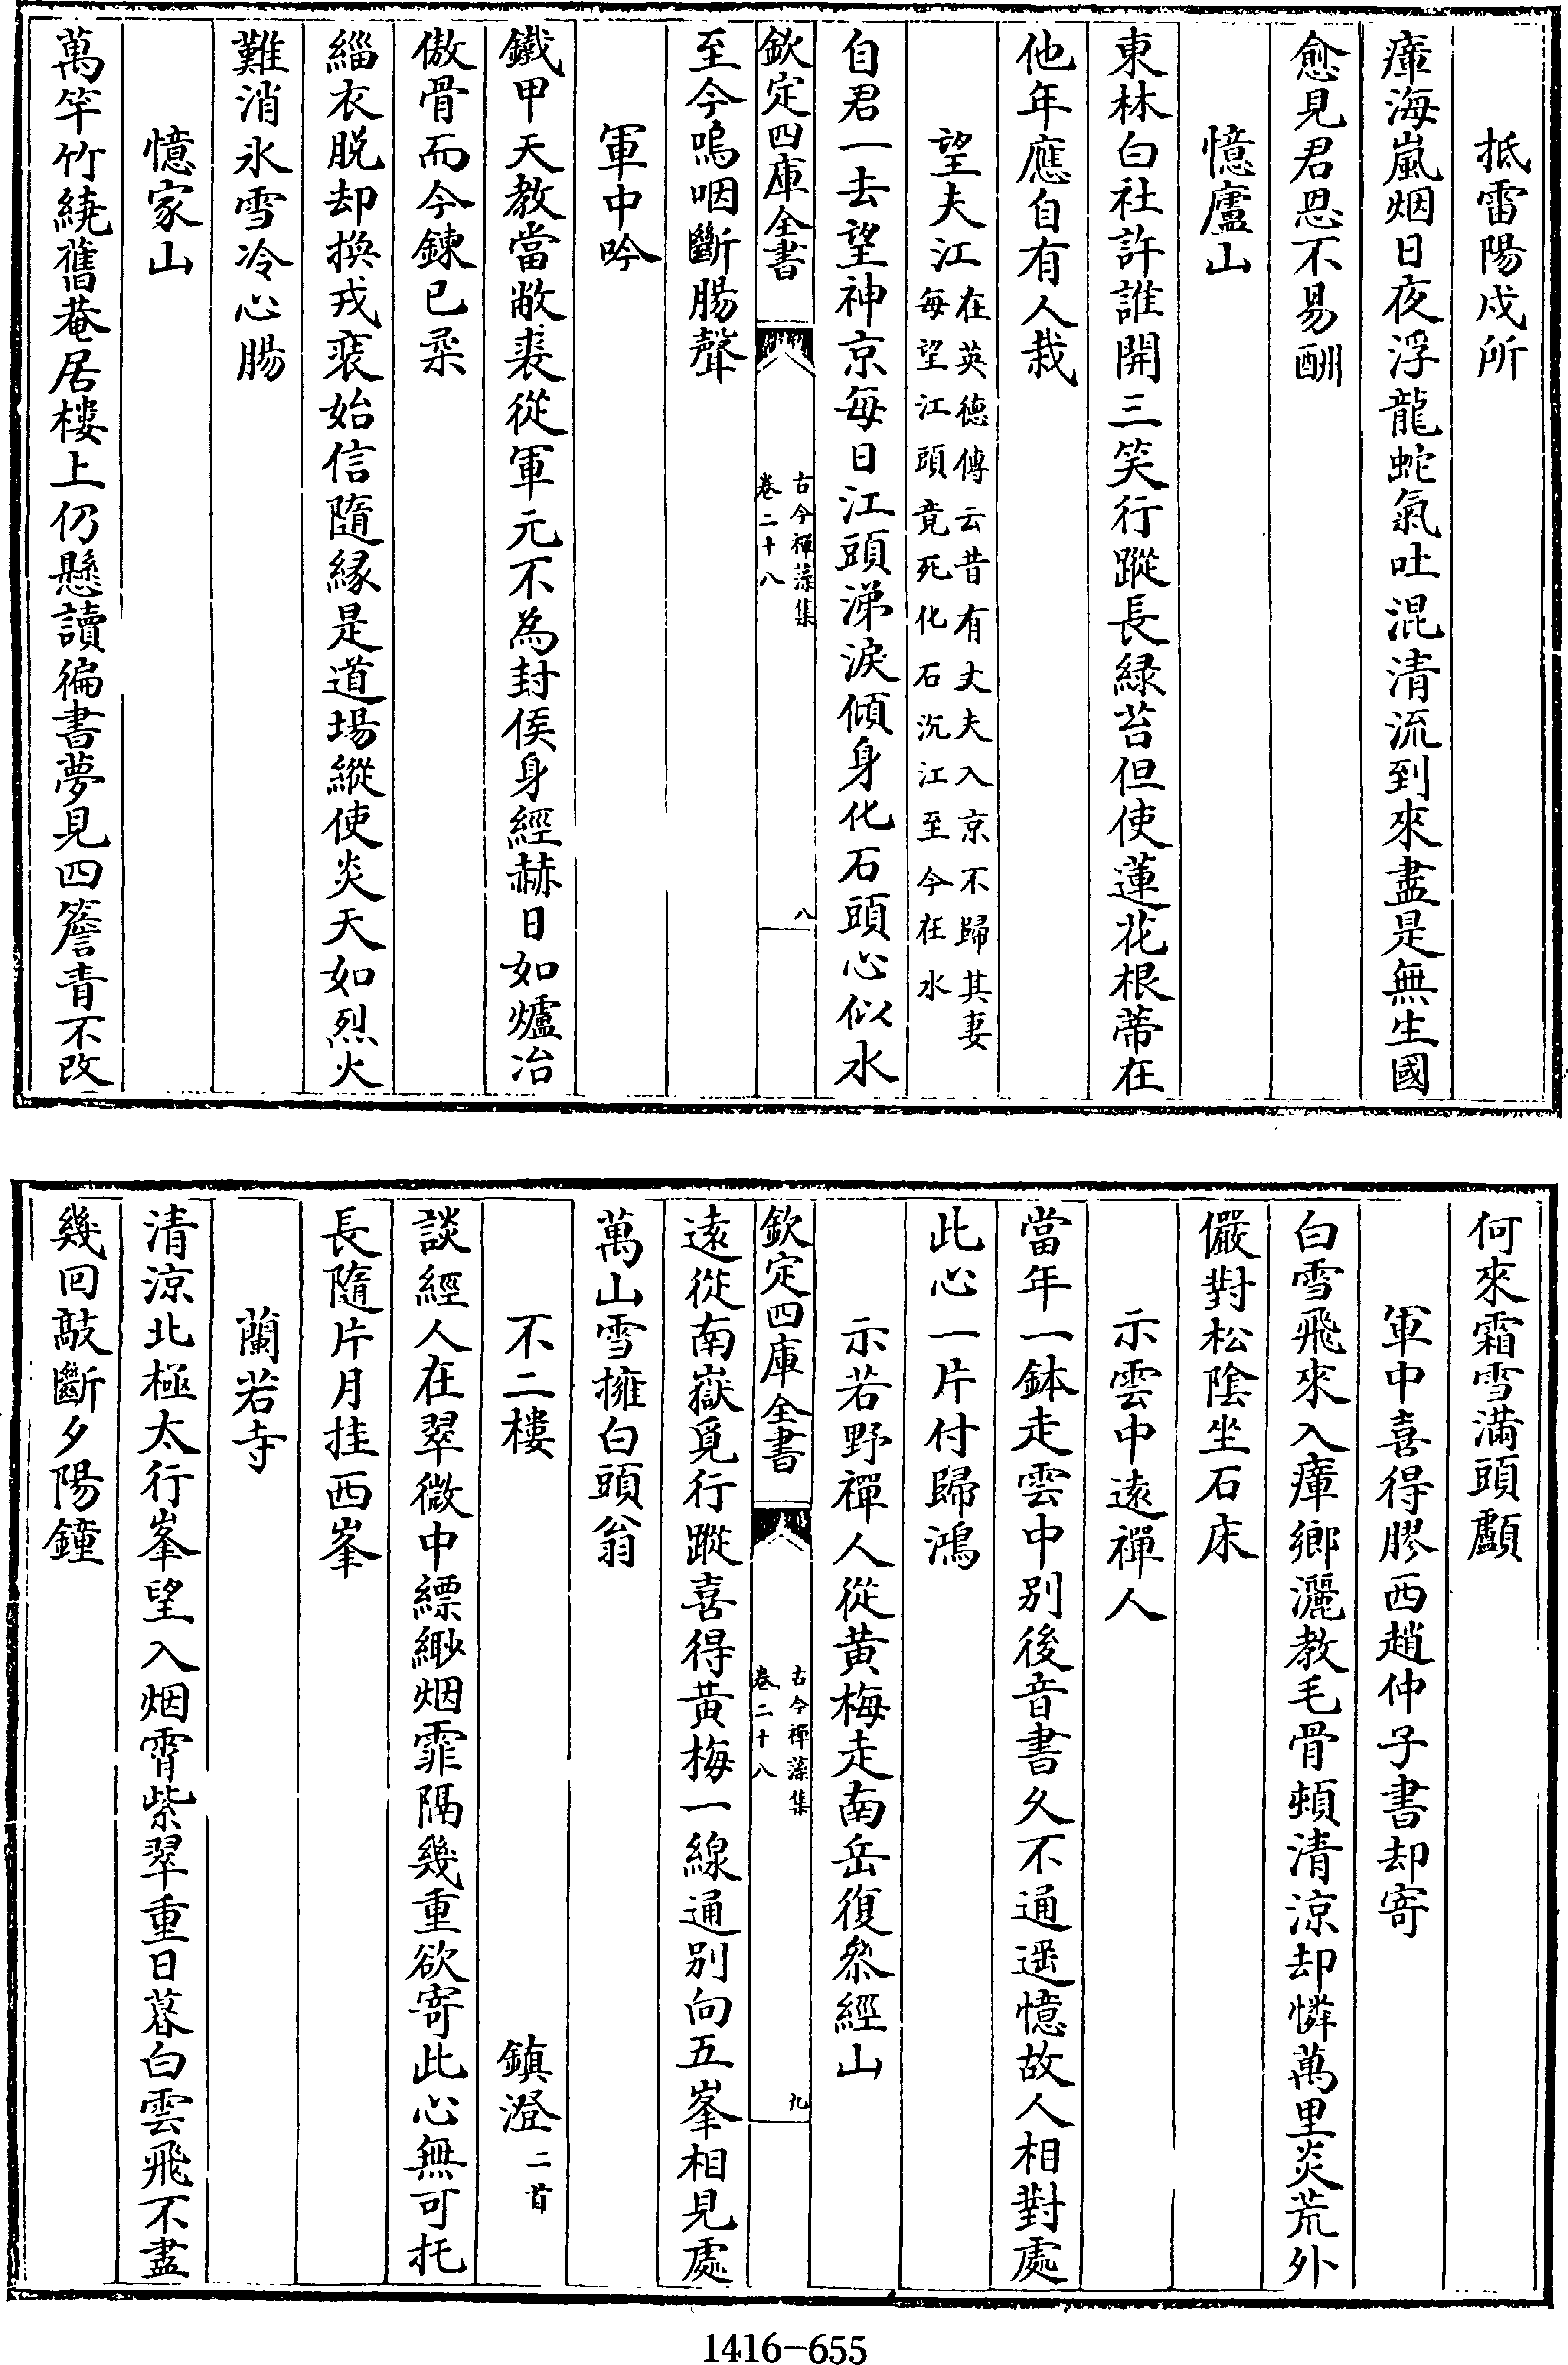 抵雷陽戍所
瘴海嵐烟日夜浮龍蛇氣吐混清流到來盡是無生國
愈見君恩不易酬
憶廬山
東林白社許誰開三笑行蹤長緑苔但使蓮花根蒂在
他年應自有人栽
望夫江在英德傳云昔有丈夫入京不歸其妻
每望江頭竟死化石沉江至今在水
自君一去望神京每日江頭涕淚傾身化石頭心似水
欽定四庫全書
古今禪藻集
卷二十八
八
至今嗚咽斷腸聲
軍中吟
鐵甲天教當敝裘從軍元不為封侯身經赫日如爐冶
傲骨而今鍊已柔
緇衣脱却換戎裘始信隨緣是道場縱使炎天如烈火
難消氷雪冷心腸
憶家山
萬竿竹繞舊菴居樓上仍懸讀徧書夢見四簷青不改
何來霜雪滿頭顱
軍中喜得膠西趙仲子書却寄
白雪飛來入瘴鄉灑教毛骨頓清涼却憐萬里炎荒外
儼對松陰坐石床
示雲中遠禪人
當年一鉢走雲中别後音書久不通遥憶故人相對處
此心一片付歸鴻
示若野禪人從黄梅走南岳復叅經山
欽定四庫全書
古今禪藻集
卷二十八
九
遠從南嶽覓行蹤喜得黄梅一線通别向五峯相見處
萬山雪擁白頭翁
不二樓 鎮澄二首
談經人在翠微中縹緲烟霏隔幾重欲寄此心無可托
長隨片月挂西峯
蘭若寺
清涼北極太行峯望入烟霄紫翠重日暮白雲飛不盡
幾回敲斷夕陽鐘
1416-655